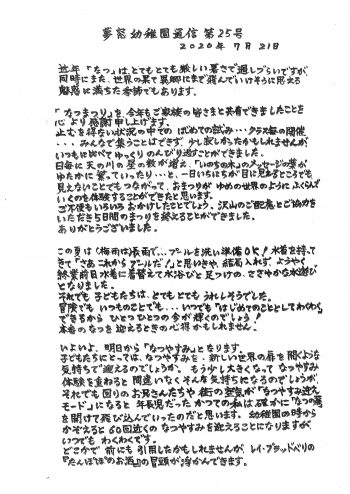 夢窓幼稚園通信 第25号
2020年7月21日
近年「なつ」は、とてもとても厳しい暑さで過しづらいですが、
同時にまた、世界の果て裏側にまで飛んでいけそうに思える
魅惑に満ちた季節でもあります。
「なつまつり」を、今年もご家族の皆さまと共有できましたことを
心より感謝申し上げます。
止むを得ない状況の中でのはじめての試み…クラス毎の開催
…みんなで集うことはできず、少し淋しかったかもしれませんが、
いつもに比べてゆっくりのんびり過ごすことができました。
日毎に天の川の星の数が増え、「いのちの木」のメッセージの葉が
ゆたかに繁っていったり…と、一日いちにちが目に見えるところでも
見えないことでもつながって、おまつりがゆめの世界のようにふくらんで
いくのを体験することができたと思います。
ご不便もいろいろおかけしたことでしょう。沢山のご配慮とご協力を
いただき5日間のまつりを終えることができました。
ありがとうございました。
この夏は(梅雨は)長雨で…プールを洗い準備OK!水着を持って
きて「さあこれからプールだ!」と思いきや、結局入れず、ようやく
終業前日水着に着替えて水浴びと足つけの、ささやかな水遊び
となりました。
それでも子どもたちは、とてもとてもうれしそうでした。
冒険でもいつものことでも…いつでも「はじめてのこととしてわくわく」
できるからひとつひとつの今が輝くのでしょう!
本番のなつを迎えるときの心得かもしれません!
いよいよ、明日から「なつやすみ」となります。
子どもたちにとっては、なつやすみを、新しい世界の扉を開くような
気持ちで迎えるのでしょうか。もう少し大きくなってなつやすみ
体験を重ねると間違いなくそんな気持ちになるのでしょうが、
それでも回りのお兄さんたちや街の空気が「なつやすみ迎え
モード」になると年長児だったかつての私は確かに"なつの扉
を開けて飛び込んでいった"のだと思います。幼稚園の時から
かぞえると60回近くのなつやすみを迎えることになりますが、
いつでもわくわくです。
どこかで前にも引用したかもしれませんが、レイ・ブラッドベリの
『たんぽぽのお酒』の冒頭が浮かんできます。